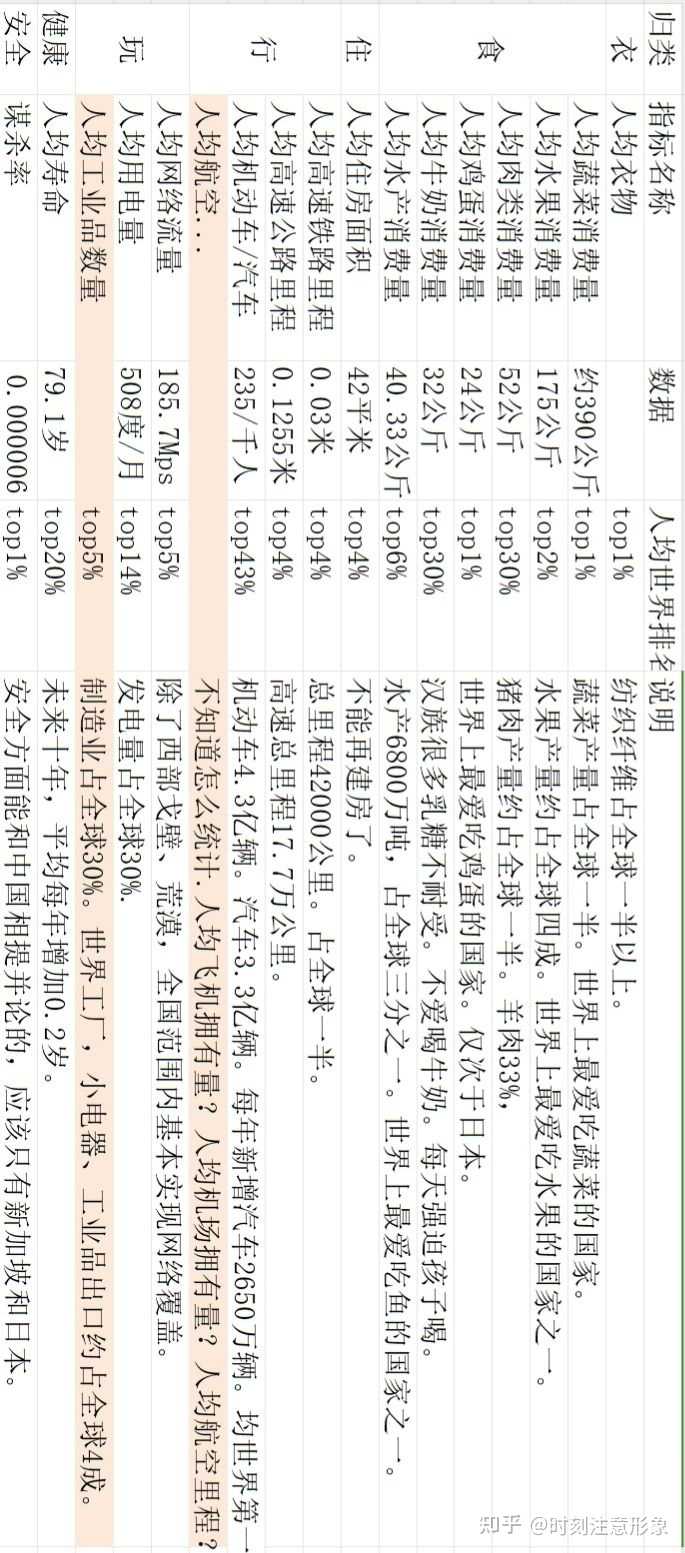 归类 指标名称 数据 人均世界排名 说明
衣 人均衣物 top1% 纺织纤维占全球一半以上。
食 人均蔬菜消费量 约390公斤 top1% 蔬菜产量占全球一半。世界上最爱吃蔬菜的国家。
人均水果消费量 175公斤 top2% 水果产量约占全球四成。世界上最爱吃水果的国家之一。
人均肉类消费量 52公斤 top30% 猪肉产量约占全球一半。羊肉33%,
人均鸡蛋消费量 24公斤 top1% 世界上最爱吃鸡蛋的国家。仅次于日本。
人均牛奶消费量 32公斤 top30% 汉族很多乳糖不耐受。不爱喝牛奶。每天强迫孩子喝。
人均水产消费量 40.33公斤 top6% 水产6800万吨，占全球三分之一。世界上最爱吃鱼的国家之一。
住 人均住房面积 42平米 top4% 不能再建房了。
行 人均高速铁路里程 0.03米 top4% 总里程42000公里。占全球一半。
人均高速公路里程 0.1255米 top4% 高速总里程17.7万公里。
人均机动车/汽车 235/千人 top43% 机动车4.3亿辆。汽车3.3亿辆。每年新增汽车2650万辆。均世界第一
人均航空... 不知道怎么统计.人均飞机拥有量？人均机场拥有量？人均航空里程？
玩 人均网络流量 185.7Mps top5% 除了西部戈壁、荒漠，全国范围内基本实现网络覆盖。
人均用电量 508度/月 top14% 发电量占全球30%.
人均工业品数量 top5% 制造业占全球30%。世界工厂，小电器、工业品出口约占全球4成。
健康 人均寿命 79.1岁 top20% 未来十年，平均每年增加0.2岁。
安全 谋杀率 0.000006 top1% 安全方面能和中国相提并论的，应该只有新加坡和日本。
知乎 @时刻注意形象